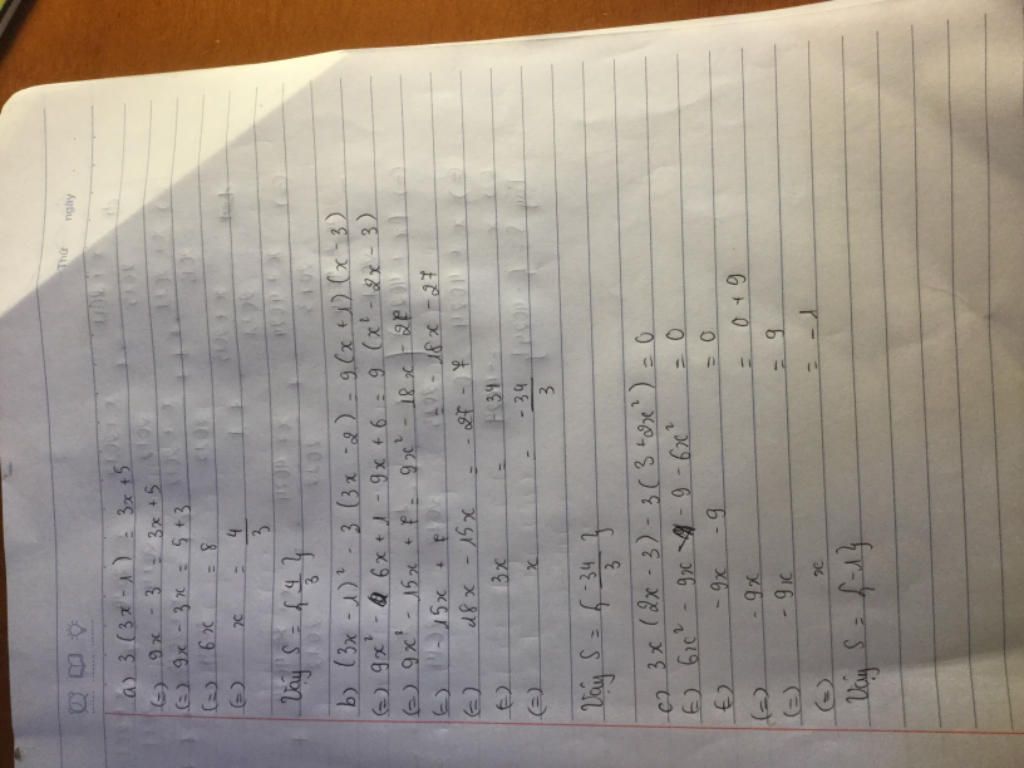 Thứ
ngày
a) 3(3x-1) = 3x+5
(=) 9x-3 = 3x+5
(=) 9x-3x = 5+3
(=) 6x = 8
(=) x = 4/3
Vậy S = { 4/3 }
b) (3x-1)² - 3(3x-2) = 9(x+1)(x-3)
(=) 9x² - 6x+1 - 9x+6 = 9(x² - 2x - 3)
(=) 9x² - 15x + 7 = 9x² - 18x - 27
(=) -15x + 7 = -18x - 27
(=) 18x - 15x = -27 - 7
(=) 3x = -34
(=) x = -34/3
Vậy S = { -34/3 }
c) 3x(2x-3) - 3(3+2x²) = 0
(=) 6x² - 9x - 9 - 6x² = 0
(=) -9x - 9 = 0
(=) -9x = 0+9
(=) -9x = 9
(=) x = -1
Vậy S = {-1}